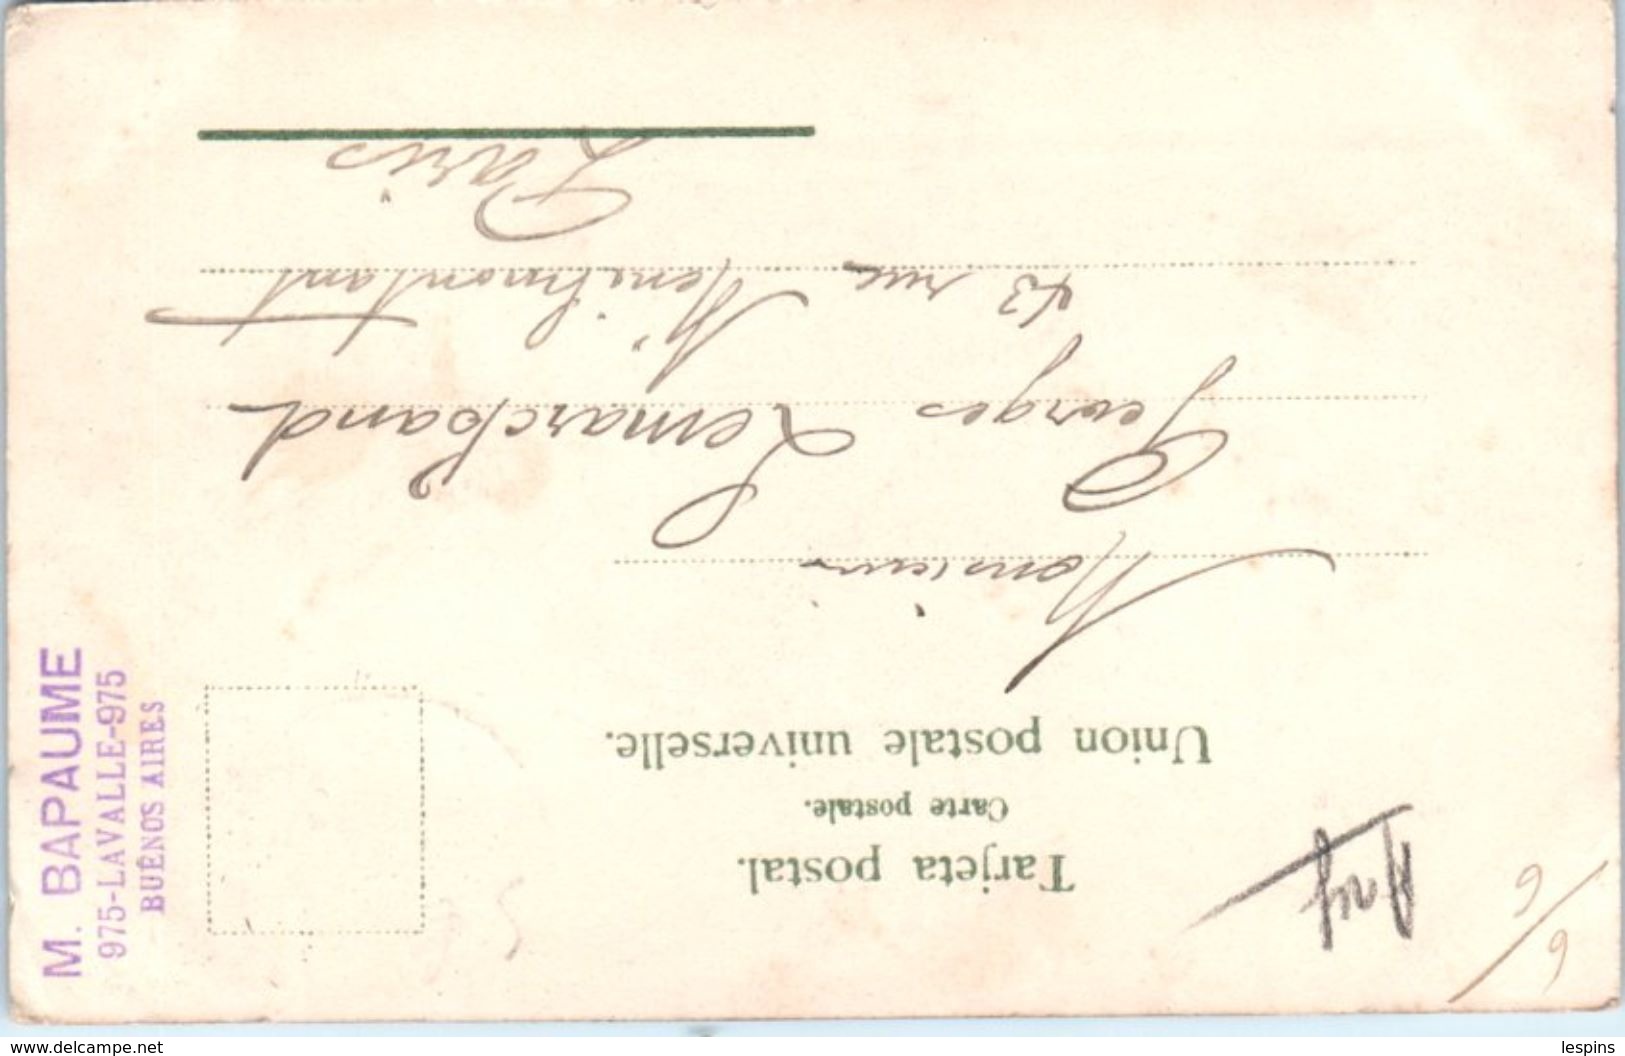 Tarjeta postal.
Carte postale.
Union postale universelle.
Monsieur
Georges Lemarchand
43 rue Menilmontant
Paris
M. BAPAUME
975-LAVALLE-975
BUENOS AIRES
www.delcampe.net
lespins